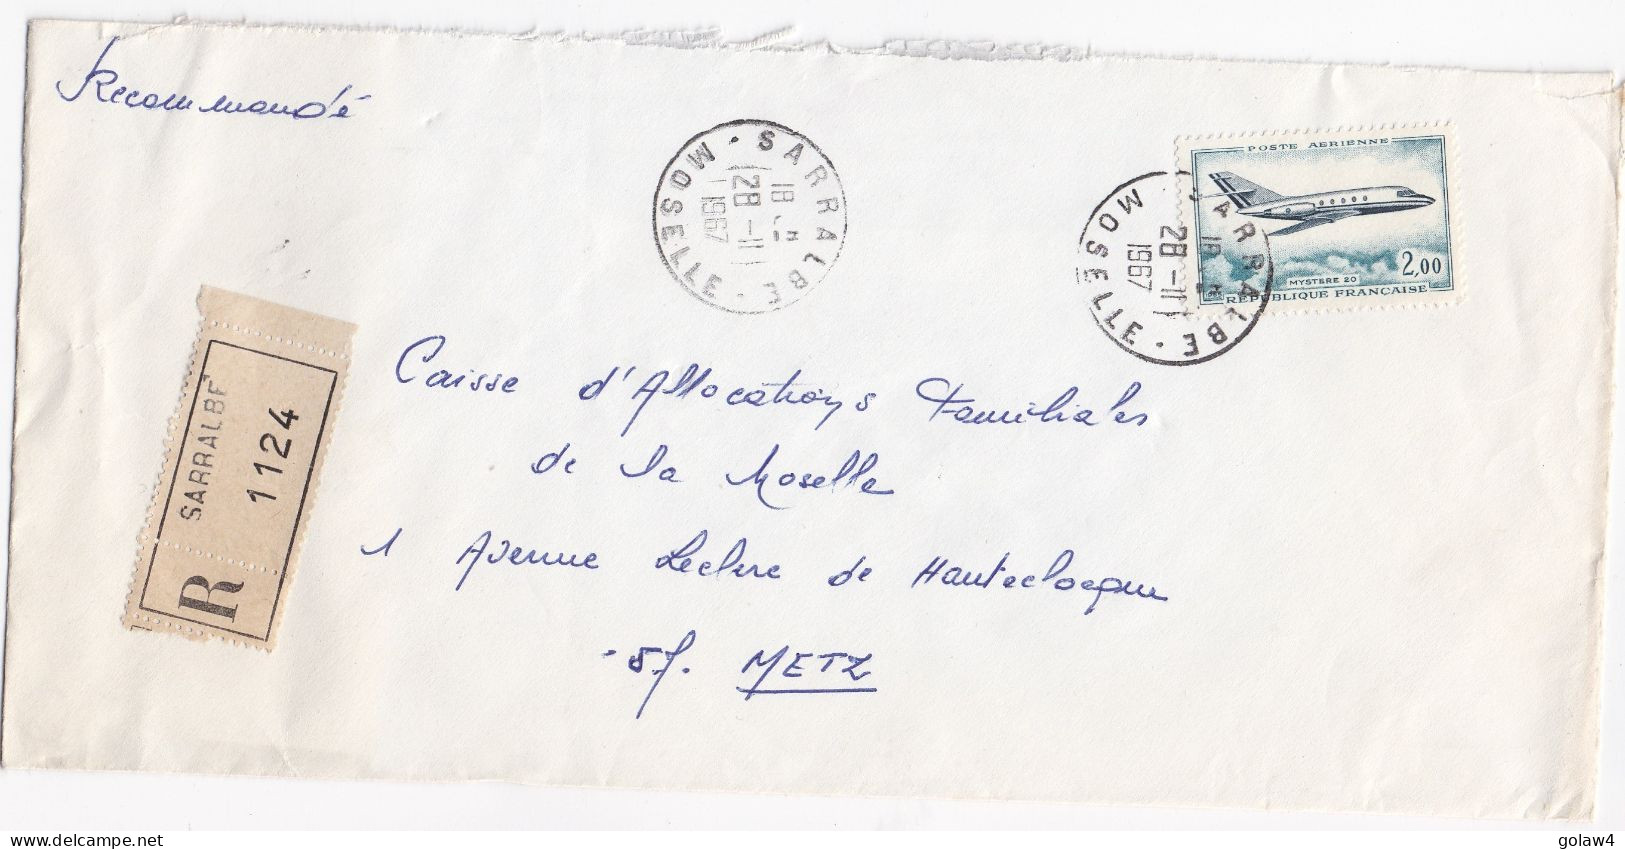 Recommandé
SARRALBE
MOSELLE
18 H
28-11
1967
POSTE AERIENNE
MYSTERE 20
2,00
REPUBLIQUE FRANÇAISE
SARRALBE
MOSELLE
18 H
28-11
1967
SARRALBE
1124
R
Caisse d'Allocations Familiales
de la Moselle
1 Avenue Leclerc de Hauteclocque
57. METZ
delcampe.net
golaw4